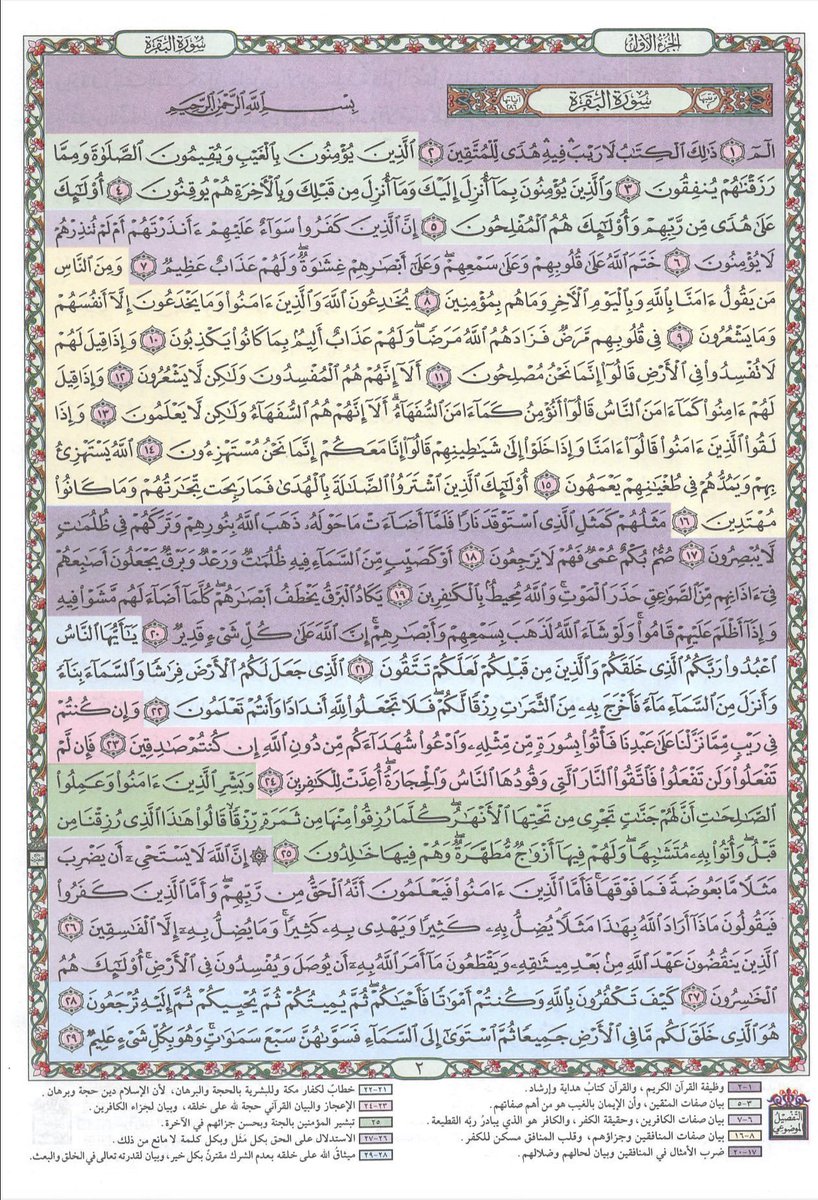 الجزء الأول
سورة البقرة
ترتيبها ٢
سورة البقرة
آياتها ٢٨٦
بِسْمِ ٱللَّهِ ٱلرَّحْمَٰنِ ٱلرَّحِيمِ
الٓمٓ ١ ذَٰلِكَ ٱلْكِتَٰبُ لَا رَيْبَ ۛ فِيهِ ۛ هُدًى لِّلْمُتَّقِينَ ٢ ٱلَّذِينَ يُؤْمِنُونَ بِٱلْغَيْبِ وَيُقِيمُونَ ٱلصَّلَوٰةَ وَمِمَّا
رَزَقْنَٰهُمْ يُنفِقُونَ ٣ وَٱلَّذِينَ يُؤْمِنُونَ بِمَآ أُنزِلَ إِلَيْكَ وَمَآ أُنزِلَ مِن قَبْلِكَ وَبِٱلْـَٔاخِرَةِ هُمْ يُوقِنُونَ ٤ أُو۟لَٰٓئِكَ
عَلَىٰ هُدًى مِّن رَّبِّهِمْ وَأُو۟لَٰٓئِكَ هُمُ ٱلْمُفْلِحُونَ ٥ إِنَّ ٱلَّذِينَ كَفَرُوا۟ سَوَآءٌ عَلَيْهِمْ ءَأَنذَرْتَهُمْ أَمْ لَمْ تُنذِرْهُمْ
لَا يُؤْمِنُونَ ٦ خَتَمَ ٱللَّهُ عَلَىٰ قُلُوبِهِمْ وَعَلَىٰ سَمْعِهِمْ ۖ وَعَلَىٰٓ أَبْصَٰرِهِمْ غِشَٰوَةٌ ۖ وَلَهُمْ عَذَابٌ عَظِيمٌ ٧ وَمِنَ ٱلنَّاسِ
مَن يَقُولُ ءَامَنَّا بِٱللَّهِ وَبِٱلْيَوْمِ ٱلْـَٔاخِرِ وَمَا هُم بِمُؤْمِنِينَ ٨ يُخَٰدِعُونَ ٱللَّهَ وَٱلَّذِينَ ءَامَنُوا۟ وَمَا يَخْدَعُونَ إِلَّآ أَنفُسَهُمْ
وَمَا يَشْعُرُونَ ٩ فِى قُلُوبِهِم مَّرَضٌ فَزَادَهُمُ ٱللَّهُ مَرَضًا ۖ وَلَهُمْ عَذَابٌ أَلِيمٌۢ بِمَا كَانُوا۟ يَكْذِبُونَ ١٠ وَإِذَا قِيلَ لَهُمْ
لَا تُفْسِدُوا۟ فِى ٱلْأَرْضِ قَالُوٓا۟ إِنَّمَا نَحْنُ مُصْلِحُونَ ١١ أَلَآ إِنَّهُمْ هُمُ ٱلْمُفْسِدُونَ وَلَٰكِن لَّا يَشْعُرُونَ ١٢ وَإِذَا قِيلَ
لَهُمْ ءَامِنُوا۟ كَمَآ ءَامَنَ ٱلنَّاسُ قَالُوٓا۟ أَنُؤْمِنُ كَمَآ ءَامَنَ ٱلسُّفَهَآءُ ۗ أَلَآ إِنَّهُمْ هُمُ ٱلسُّفَهَآءُ وَلَٰكِن لَّا يَعْلَمُونَ ١٣ وَإِذَا
لَقُوا۟ ٱلَّذِينَ ءَامَنُوا۟ قَالُوٓا۟ ءَامَنَّا وَإِذَا خَلَوْا۟ إِلَىٰ شَيَٰطِينِهِمْ قَالُوٓا۟ إِنَّا مَعَكُمْ إِنَّمَا نَحْنُ مُسْتَهْزِءُونَ ١٤ ٱللَّهُ يَسْتَهْزِئُ
بِهِمْ وَيَمُدُّهُمْ فِى طُغْيَٰنِهِمْ يَعْمَهُونَ ١٥ أُو۟لَٰٓئِكَ ٱلَّذِينَ ٱشْتَرَوُا۟ ٱلضَّلَٰلَةَ بِٱلْهُدَىٰ فَمَا رَبِحَت تِّجَٰرَتُهُمْ وَمَا كَانُوا۟
مُهْتَدِينَ ١٦ مَثَلُهُمْ كَمَثَلِ ٱلَّذِى ٱسْتَوْقَدَ نَارًا فَلَمَّآ أَضَآءَتْ مَا حَوْلَهُۥ ذَهَبَ ٱللَّهُ بِنُورِهِمْ وَتَرَكَهُمْ فِى ظُلُمَٰتٍ
لَّا يُبْصِرُونَ ١٧ صُمٌّۢ بُكْمٌ عُمْىٌ فَهُمْ لَا يَرْجِعُونَ ١٨ أَوْ كَصَيِّبٍ مِّنَ ٱلسَّمَآءِ فِيهِ ظُلُمَٰتٌ وَرَعْدٌ وَبَرْقٌ يَجْعَلُونَ أَصَٰبِعَهُمْ
فِىٓ ءَاذَانِهِم مِّنَ ٱلصَّوَٰعِقِ حَذَرَ ٱلْمَوْتِ ۚ وَٱللَّهُ مُحِيطٌۢ بِٱلْكَٰفِرِينَ ١٩ يَكَادُ ٱلْبَرْقُ يَخْطَفُ أَبْصَٰرَهُمْ ۖ كُلَّمَآ أَضَآءَ لَهُم مَّشَوْا۟ فِيهِ
وَإِذَآ أَظْلَمَ عَلَيْهِمْ قَامُوا۟ ۚ وَلَوْ شَآءَ ٱللَّهُ لَذَهَبَ بِسَمْعِهِمْ وَأَبْصَٰرِهِمْ ۚ إِنَّ ٱللَّهَ عَلَىٰ كُلِّ شَىْءٍ قَدِيرٌ ٢٠ يَٰٓأَيُّهَا ٱلنَّاسُ
ٱعْبُدُوا۟ رَبَّكُمُ ٱلَّذِى خَلَقَكُمْ وَٱلَّذِينَ مِن قَبْلِكُمْ لَعَلَّكُمْ تَتَّقُونَ ٢١ ٱلَّذِى جَعَلَ لَكُمُ ٱلْأَرْضَ فِرَٰشًا وَٱلسَّمَآءَ بِنَآءً
وَأَنزَلَ مِنَ ٱلسَّمَآءِ مَآءً فَأَخْرَجَ بِهِۦ مِنَ ٱلثَّمَرَٰتِ رِزْقًا لَّكُمْ ۖ فَلَا تَجْعَلُوا۟ لِلَّهِ أَندَادًا وَأَنتُمْ تَعْلَمُونَ ٢٢ وَإِن كُنتُمْ
فِى رَيْبٍ مِّمَّا نَزَّلْنَا عَلَىٰ عَبْدِنَا فَأْتُوا۟ بِسُورَةٍ مِّن مِّثْلِهِۦ وَٱدْعُوا۟ شُهَدَآءَكُم مِّن دُونِ ٱللَّهِ إِن كُنتُمْ صَٰدِقِينَ ٢٣ فَإِن لَّمْ
تَفْعَلُوا۟ وَلَن تَفْعَلُوا۟ فَٱتَّقُوا۟ ٱلنَّارَ ٱلَّتِى وَقُودُهَا ٱلنَّاسُ وَٱلْحِجَارَةُ ۖ أُعِدَّتْ لِلْكَٰفِرِينَ ٢٤ وَبَشِّرِ ٱلَّذِينَ ءَامَنُوا۟ وَعَمِلُوا۟
ٱلصَّٰلِحَٰتِ أَنَّ لَهُمْ جَنَّٰتٍ تَجْرِى مِن تَحْتِهَا ٱلْأَنْهَٰرُ ۖ كُلَّمَا رُزِقُوا۟ مِنْهَا مِن ثَمَرَةٍ رِّزْقًا ۙ قَالُوا۟ هَٰذَا ٱلَّذِى رُزِقْنَا مِن
قَبْلُ ۖ وَأُتُوا۟ بِهِۦ مُتَشَٰبِهًا ۖ وَلَهُمْ فِيهَآ أَزْوَٰجٌ مُّطَهَّرَةٌ ۖ وَهُمْ فِيهَا خَٰلِدُونَ ٢٥ ۞ إِنَّ ٱللَّهَ لَا يَسْتَحْىِۦٓ أَن يَضْرِبَ
مَثَلًا مَّا بَعُوضَةً فَمَا فَوْقَهَا ۚ فَأَمَّا ٱلَّذِينَ ءَامَنُوا۟ فَيَعْلَمُونَ أَنَّهُ ٱلْحَقُّ مِن رَّبِّهِمْ ۖ وَأَمَّا ٱلَّذِينَ كَفَرُوا۟
فَيَقُولُونَ مَاذَآ أَرَادَ ٱللَّهُ بِهَٰذَا مَثَلًا ۘ يُضِلُّ بِهِۦ كَثِيرًا وَيَهْدِى بِهِۦ كَثِيرًا ۚ وَمَا يُضِلُّ بِهِۦٓ إِلَّا ٱلْفَٰسِقِينَ ٢٦
ٱلَّذِينَ يَنقُضُونَ عَهْدَ ٱللَّهِ مِنۢ بَعْدِ مِيثَٰقِهِۦ وَيَقْطَعُونَ مَآ أَمَرَ ٱللَّهُ بِهِۦٓ أَن يُوصَلَ وَيُفْسِدُونَ فِى ٱلْأَرْضِ ۚ أُو۟لَٰٓئِكَ هُمُ
ٱلْخَٰسِرُونَ ٢٧ كَيْفَ تَكْفُرُونَ بِٱللَّهِ وَكُنتُمْ أَمْوَٰتًا فَأَحْيَٰكُمْ ۖ ثُمَّ يُمِيتُكُمْ ثُمَّ يُحْيِيكُمْ ثُمَّ إِلَيْهِ تُرْجَعُونَ ٢٨
هُوَ ٱلَّذِى خَلَقَ لَكُم مَّا فِى ٱلْأَرْضِ جَمِيعًا ثُمَّ ٱسْتَوَىٰٓ إِلَى ٱلسَّمَآءِ فَسَوَّىٰهُنَّ سَبْعَ سَمَٰوَٰتٍ ۚ وَهُوَ بِكُلِّ شَىْءٍ عَلِيمٌ ٢٩
٢
التفصيل الموضوعي
١-٢ وظيفة القرآن الكريم، والقرآن كتابُ هداية وإرشاد.
٣-٥ بيان صفات المتّقين، وأن الإيمان بالغيب هو من أهم صفاتهم.
٦-٧ بيان صفات الكافرين، وحقيقة الكفر، والكافر هو الذي يبادرُ ربّه القطيعة.
٨-١٦ بيان صفات المنافقين وجزاؤهم، وقلب المنافق مسكن للكفر.
١٧-٢٠ ضرب الأمثال في المنافقين وبيان لحالهم وضلالهم.
٢١-٢٢ خطابٌ لكفار مكة وللبشرية بالحجة والبرهان، لأن الإسلام دين حجة وبرهان.
٢٣-٢٤ الإعجاز والبيان القرآني حجة لله على خلقه، وبيان لجزاء الكافرين.
٢٥ تبشير المؤمنين بالجنة وبحسن جزائهم في الآخرة.
٢٦-٢٧ الاستدلال على الحق بكل مَثَل وبكل كلمة لا مانع من ذلك.
٢٨-٢٩ ميثاقُ الله على خلقه بعدم الشرك مقترنٌ بكل خير، وبيان لقدرته تعالى في الخلق والبعث.